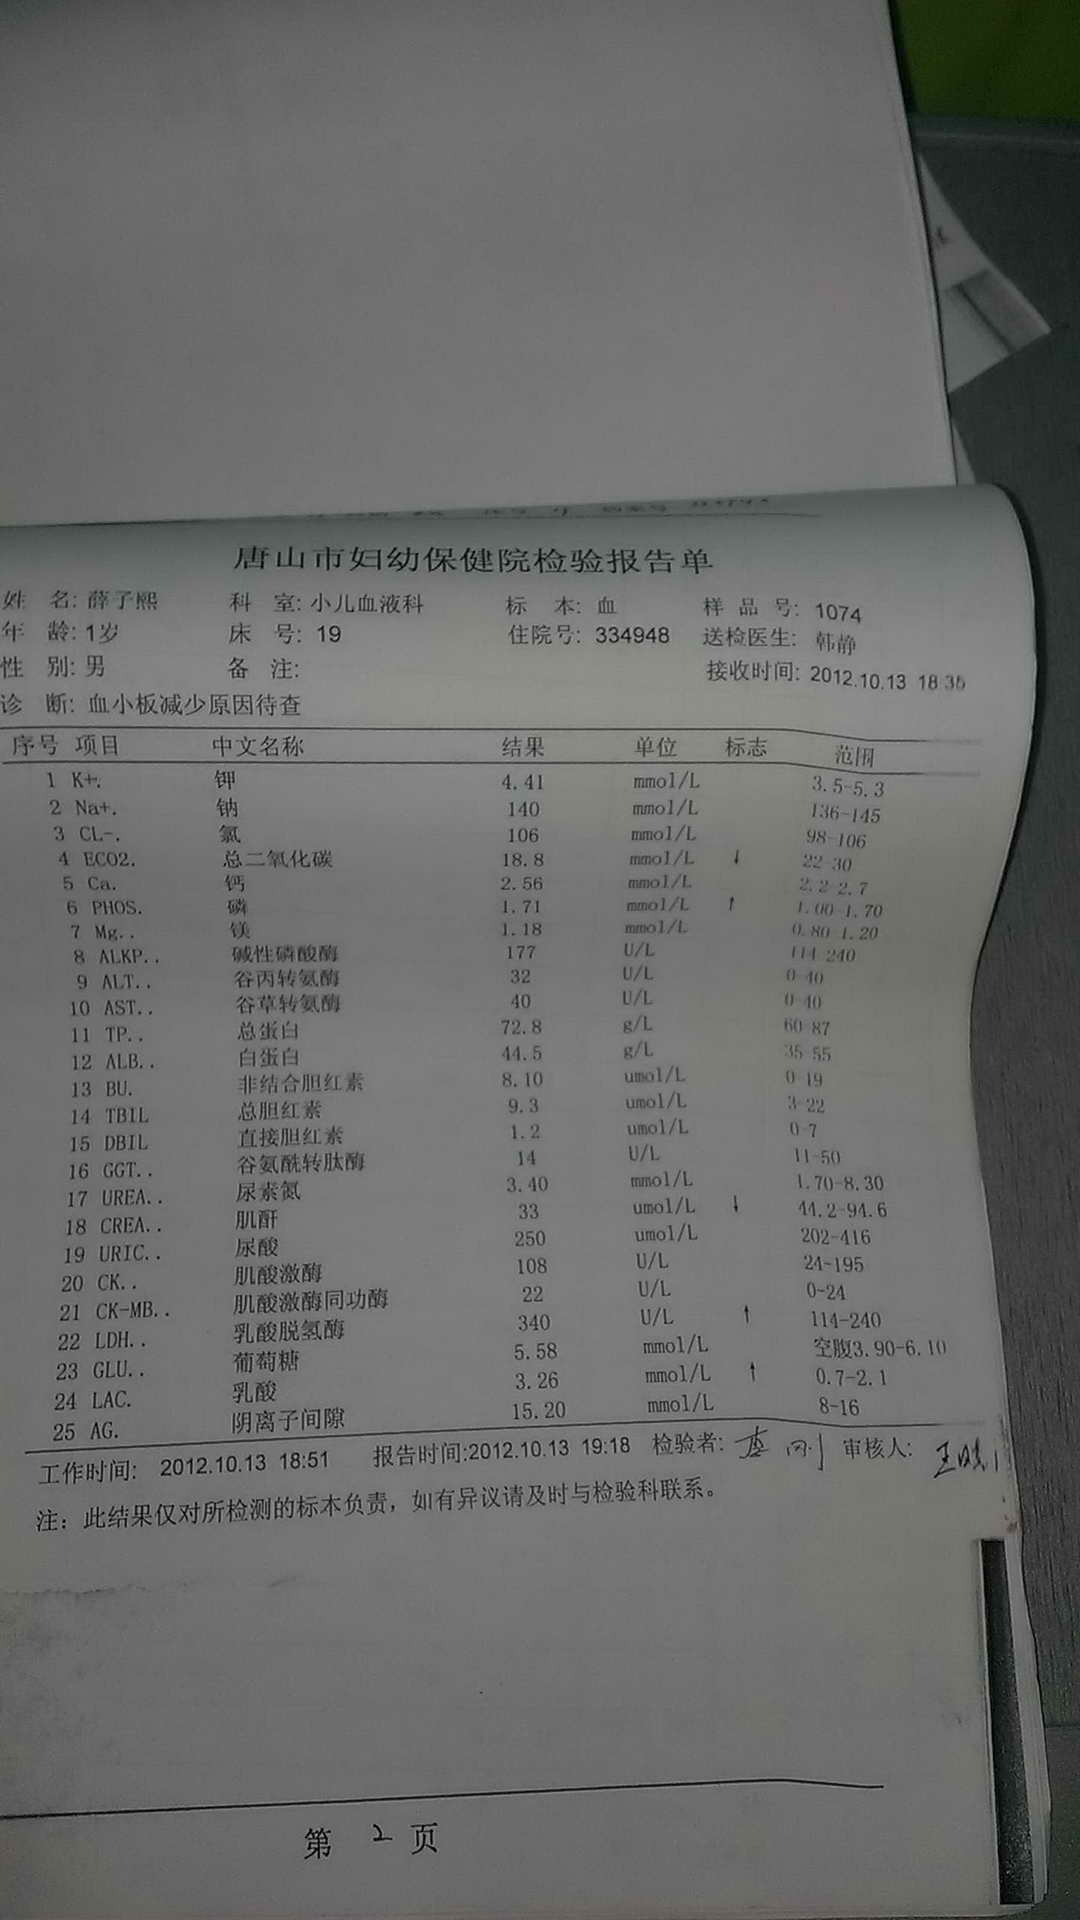 唐山市妇幼保健院检验报告单
姓 名: 薛子熙 科 室: 小儿血液科 标 本: 血 样 品 号: 1074
年 龄: 1岁 床 号: 19 住院号: 334948 送检医生: 韩静
性 别: 男 备 注: 接收时间: 2012.10.13 18:35
诊 断: 血小板减少原因待查
序号 项目 中文名称 结果 单位 标志 范围
1 K+. 钾 4.41 mmol/L 3.5-5.3
2 Na+. 钠 140 mmol/L 136-145
3 CL-. 氯 106 mmol/L 98-106
4 ECO2. 总二氧化碳 18.8 mmol/L ↓ 22-30
5 Ca. 钙 2.56 mmol/L 2.2-2.7
6 PHOS. 磷 1.71 mmol/L ↑ 1.00-1.70
7 Mg.. 镁 1.18 mmol/L 0.80-1.20
8 ALKP.. 碱性磷酸酶 177 U/L 114-240
9 ALT.. 谷丙转氨酶 32 U/L 0-40
10 AST.. 谷草转氨酶 40 U/L 0-40
11 TP.. 总蛋白 72.8 g/L 60-87
12 ALB.. 白蛋白 44.5 g/L 35-55
13 BU. 非结合胆红素 8.10 umol/L 0-19
14 TBIL 总胆红素 9.3 umol/L 3-22
15 DBIL 直接胆红素 1.2 umol/L 0-7
16 GGT.. 谷氨酰转肽酶 14 U/L 11-50
17 UREA.. 尿素氮 3.40 mmol/L 1.70-8.30
18 CREA.. 肌酐 33 umol/L ↓ 44.2-94.6
19 URIC.. 尿酸 250 umol/L 202-416
20 CK.. 肌酸激酶 108 U/L 24-195
21 CK-MB.. 肌酸激酶同功酶 22 U/L 0-24
22 LDH.. 乳酸脱氢酶 340 U/L ↑ 114-240
23 GLU.. 葡萄糖 5.58 mmol/L 空腹3.90-6.10
24 LAC. 乳酸 3.26 mmol/L ↑ 0.7-2.1
25 AG. 阴离子间隙 15.20 mmol/L 8-16
工作时间: 2012.10.13 18:51 报告时间:2012.10.13 19:18 检验者: 审核人:
注: 此结果仅对所检测的标本负责，如有异议请及时与检验科联系。
第 2 页